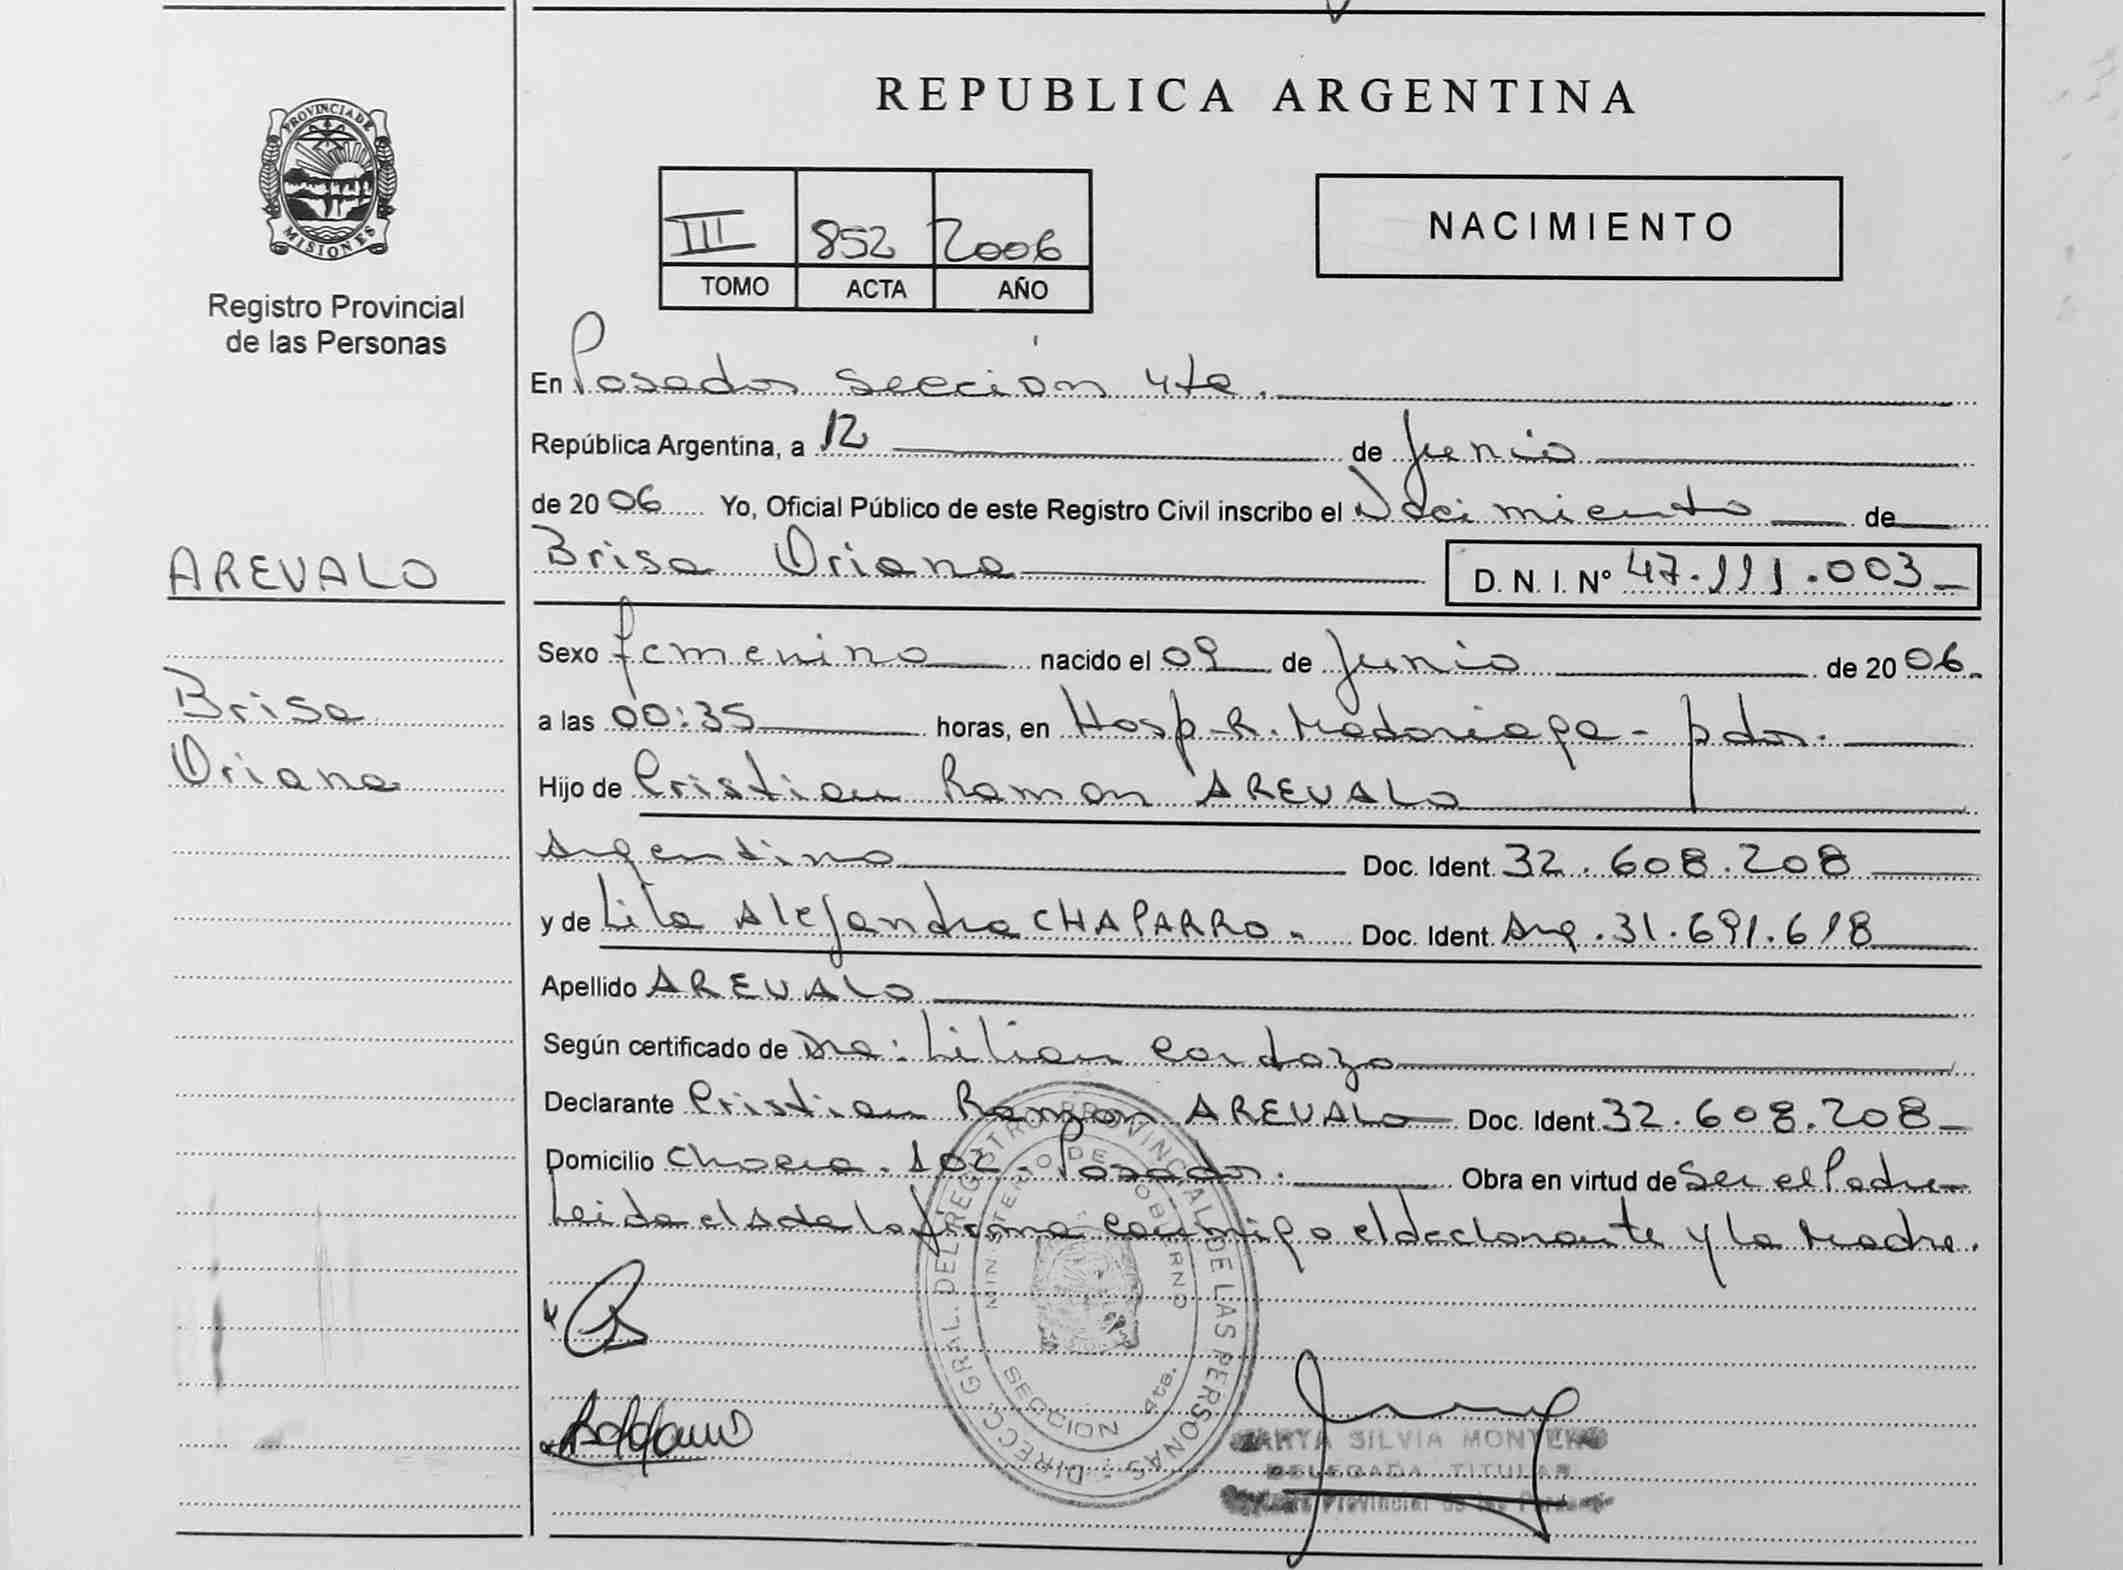 REPUBLICA ARGENTINA
PROVINCIA DE
MISIONES
Registro Provincial
de las Personas
III 852 2006
TOMO ACTA AÑO
NACIMIENTO
En Posadas sección 4ta.
República Argentina, a 12 de Junio
de 2006 Yo, Oficial Público de este Registro Civil inscribo el Nacimiento de
AREVALO
Brisa Oriana D. N. I. Nº 47.111.003
Sexo femenino nacido el 09 de Junio de 2006.
Brisa
Oriana
a las 00:35 horas, en Hosp. R. Madariaga - pdas.
Hijo de Cristian Ramon AREVALO
Argentino Doc. Ident. 32.608.208
y de Lila Alejandra CHAPARRO. Doc. Ident. Arg. 31.691.618
Apellido AREVALO
Según certificado de Dra: Lilian Cardozo
Declarante Cristian Ramon AREVALO Doc. Ident. 32.608.208
Domicilio 102. Posadas. Obra en virtud de Ser el Padre
Leida el Acta la firma conmigo el declarante y la Madre.
DIRECC. GRAL. DEL REGISTRO PROVINCIAL DE LAS PERSONAS
MINISTERIO DE GOBIERNO
SECCION 4ta.
SILVIA MONTERO
DELEGADA TITULAR
Provincial de las